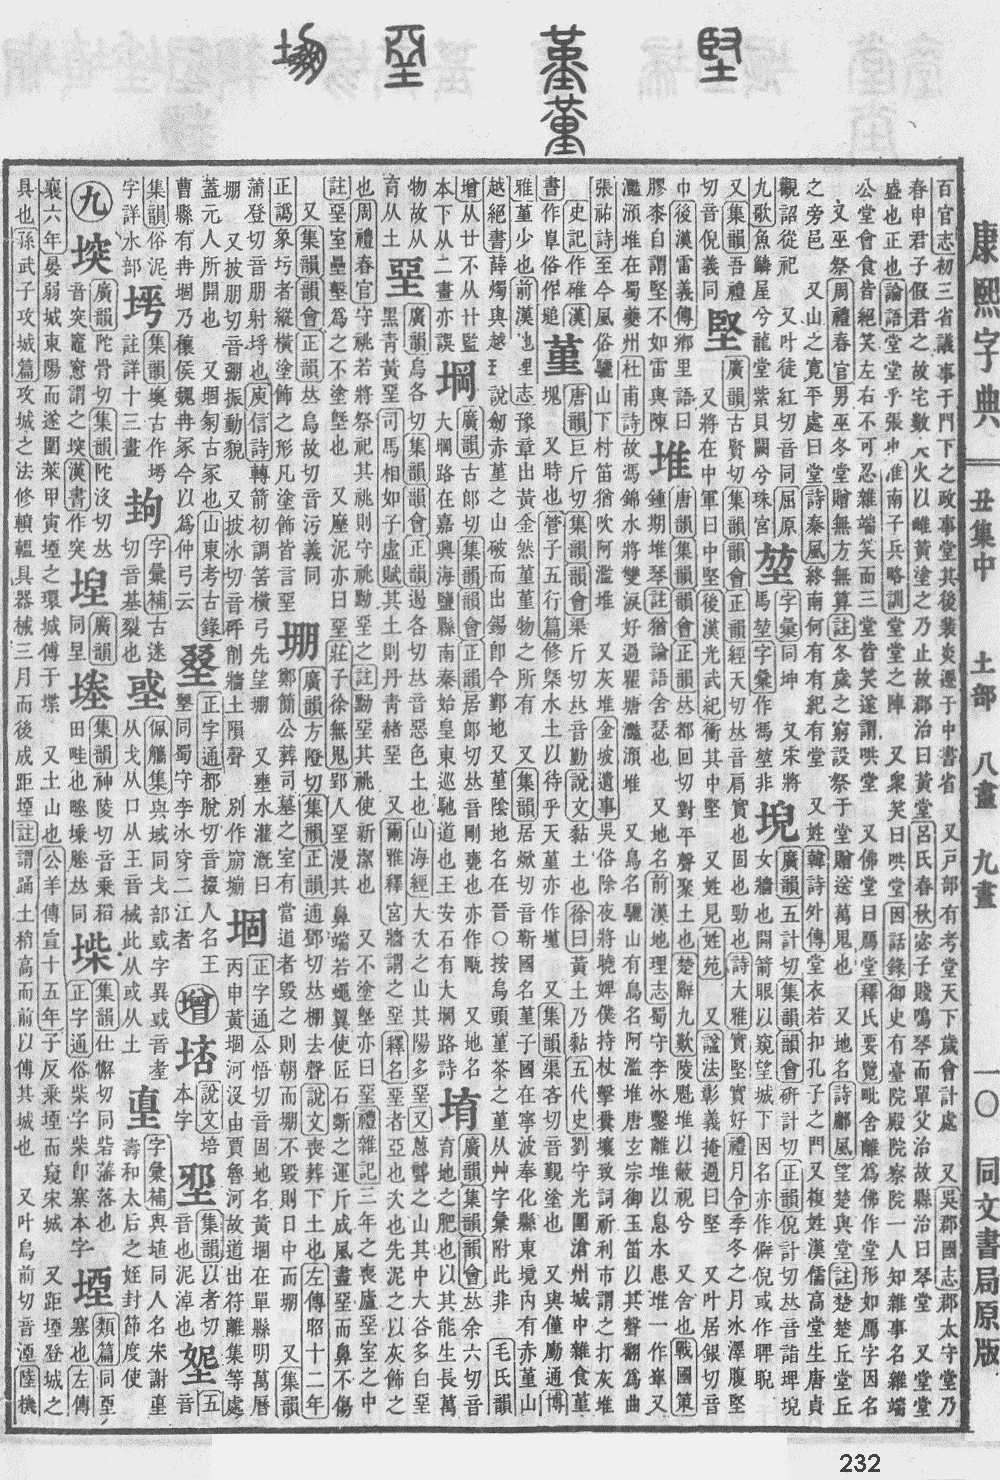 堅 堇 堊 堋
康熙字典 丑集中 土部 八畫 九畫 一〇 同文書局原版
百官志初三省議事于門下之政事堂其後裴炎遷于中書省 又戸部有考堂天下歲會計處 又吳郡國志郡太守堂乃
春申君子假君之故宅數火以雌黃塗之乃止故郡治曰黃堂呂氏春秋宓子賤鳴琴而單父治故縣治曰琴堂 又堂堂
盛也正也論語堂堂乎張也淮南子兵略訓堂堂之陣 又衆笑曰哄堂因話錄御史有臺院殿院察院一人知雜事名雜端
公堂會食皆絕笑左右不可忍雜端笑而三堂皆笑遂謂哄堂 又佛堂曰鴈堂釋氏要覽毗舍離爲佛作堂形如鴈字因名
又巫祭周禮春官男巫冬堂贈無方無算註冬歲之窮設祭于堂贈送萬鬼也 又地名詩鄘風望楚與堂註楚楚丘堂丘
之旁邑 又山之寬平處曰堂詩秦風終南何有有紀有堂 又姓韓詩外傳堂衣若扣孔子之門又複姓漢儒高堂生唐貞
觀詔從祀 又叶徒紅切音同屈原
九歌魚鱗屋兮龍堂紫貝闕兮珠宮 堃 字彙同坤 又宋將馬堃字彙作馮堃非 堄 廣韻五計切集韻會硏計切正韻倪計切𠀤音詣埤堄女牆也開箭眼以窺望城下因名亦作僻倪或作睥睨
又集韻吾禮切音倪義同 堅 廣韻古賢切集韻韻會正韻經天切𠀤音肩實也固也勁也詩大雅實堅實好禮月令季冬之月水澤腹堅 又將在中軍曰中堅後漢光武紀衝其中堅 又姓見姓苑 又諡法彰義掩過曰堅 又叶居銀切音
巾後漢雷義傳鄉里語曰膠桼自謂堅不如雷與陳 堆 唐韻集韻韻會正韻𠀤都回切對平聲聚土也楚辭九歎陵魁堆以蔽視兮 又舍也戰國策鍾期堆琴註猶論語舍瑟也 又地名前漢地理志蜀守李冰鑿離堆以息水患堆一作𨸏又
灩澦堆在蜀夔州杜甫詩故馮錦水將雙淚好過瞿塘灩澦堆 又鳥名驪山有鳥名阿濫堆唐玄宗御玉笛以其聲翻爲曲
張祜詩至今風俗驪山下村笛猶吹阿濫堆 又灰堆金坡遺事吳俗除夜將曉婢僕持杖擊糞壤致詞祈利市謂之打灰堆
史記作碓漢書作𨸏俗作塠 堇 唐韻巨斤切集韻韻會渠斤切𠀤音勤說文黏土也徐曰黃土乃黏五代史劉守光圍滄州城中雜食堇塊 又時也管子五行篇修槩水土以待乎天堇亦作墐 又集韻渠吝切音覲塗也 又與僅廑通博
雅堇少也前漢地理志豫章出黃金然堇堇物之所有 又集韻居焮切音靳國名堇子國在寧波奉化縣東境內有赤堇山
越絕書薛燭與越王說劒赤堇之山破而出錫卽今鄞地又堇陰地名在晉○按烏頭堇荼之堇从艸字彙附此非 毛氏韻
增从廿不从卄監本下从二畫亦誤 堈 廣韻古郎切集韻韻會正韻居郎切𠀤音剛甕也亦作㼚 又地名大堈路在嘉興海鹽縣南秦始皇東巡馳道也王安石有大堈路詩 堉 廣韻集韻韻會𠀤余六切音育地之肥也以其能生長萬
物故从育从土 堊 廣韻烏各切集韻韻會正韻遏各切𠀤音惡色土也山海經大次之山其陽多堊又蔥聾之山其中大谷多白堊黑青黃堊司馬相如子虛賦其土則丹靑赭堊 又爾雅釋宮牆謂之堊釋名堊者亞也次也先泥之以灰飾之
也周禮春官守祧若將祭祀其祧則守祧黝堊之註黝堊其祧使新潔也 又不塗墍亦曰堊禮雜記三年之喪廬堊室之中
註堊室壘墼爲之不塗墍也 又塺泥亦曰堊莊子徐無鬼郢人堊漫其鼻端若蠅翼使匠石斲之運斤成風盡堊而鼻不傷
又集韻韻會正韻𠀤烏故切音污義同正譌象圬者縱橫塗飾之形凡塗飾皆言堊 堋 廣韻方隥切集韻正韻逋鄧切𠀤棚去聲說文喪葬下土也左傳昭十二年鄭簡公葬司墓之室有當道者毀之則朝而堋不毀則日中而堋 又集韻
蒲登切音朋射埒也庾信詩轉箭初調筈橫弓先望堋 又壅水灌漑曰堋 又披朋切音漰振動貌 又披冰切音砯削牆土隕聲 別作崩塴 堌 正字通公悟切音固地名黃堌在單縣明萬曆丙申黃堌河沒由賈魯河故道出符離集等處
蓋元人所開也 又堌冢古冢也山東考古錄曹縣有冉堌乃穰侯魏冉冢今以爲仲弓云 𡍩 正字通都脫切音掇人名王𡍩同蜀守李冰穿二江者 ㊉增 㙂 說文培本字 堊 集韻以者切音也泥淖也 𡌩 五音
集韻俗泥字詳水部 堮 集韻墺古作堮註詳十三畫 𡌶 字彙補古迷切音基裂也 惑 佩觿集與域同戈部或字異或音㘽从戈从口从王一王械此从或从土 𡍑 字彙補與埴同人名宋謝𡍑壽和太后之姪封節度使
㊈ 堗 廣韻陀骨切集韻陀沒切𠀤音突竈窻謂之堗漢書作突 堭 廣韻同皇 塖 集韻神陵切音乘稻田畦也塍堘𠀤同 𡍖 集韻仕懈切同砦藩落也正字通俗柴字柴卽塞本字 堙 塞也左傳類篇同垔
襄六年晏弱城東陽而遂圍萊甲寅堙之環城傅于堞 又土山也公羊傳宣十五年子反乘堙而窺宋城 又距堙登城之
具也孫武子攻城篇攻城之法修轒轀具器械三月而後成距堙註謂踊土稍高而前以傅其城也 又叶烏前切音湮陸機
232